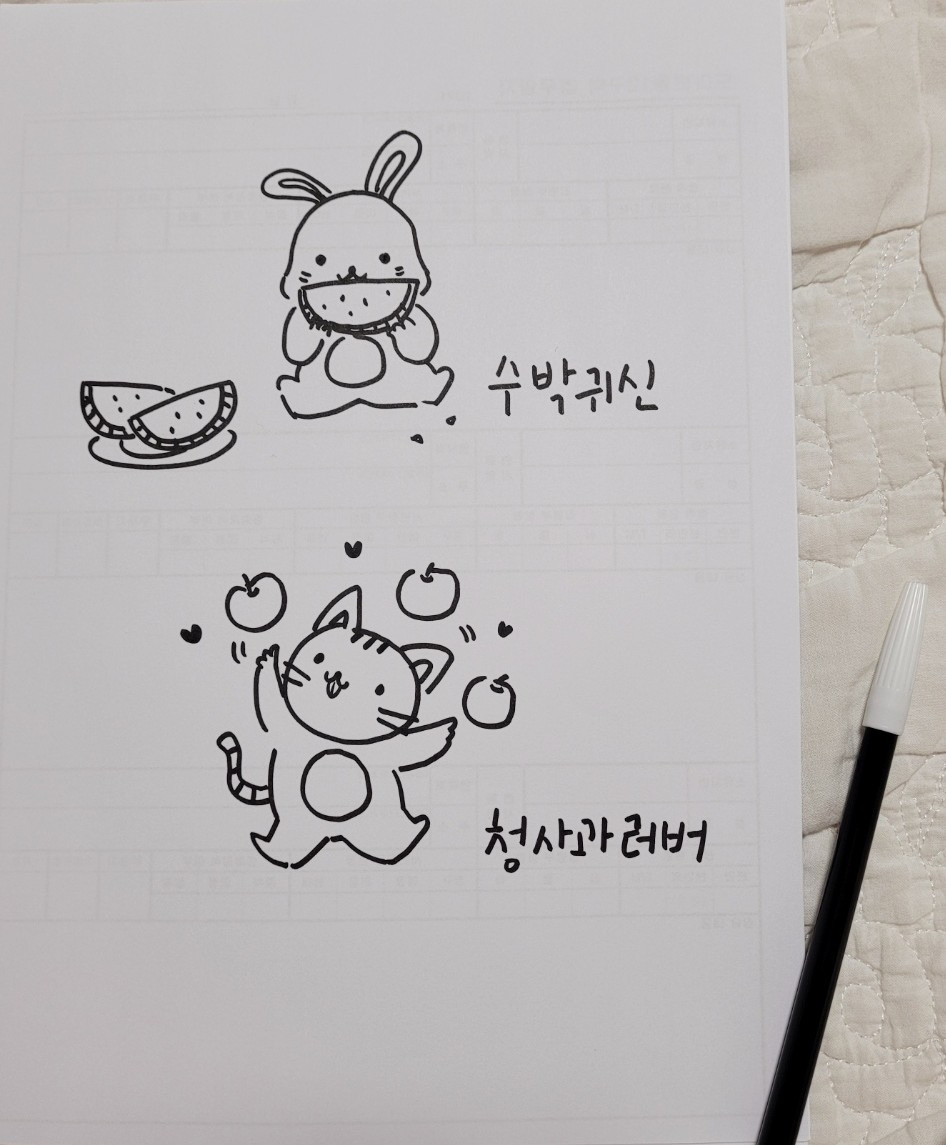 수박귀신
청사과러버